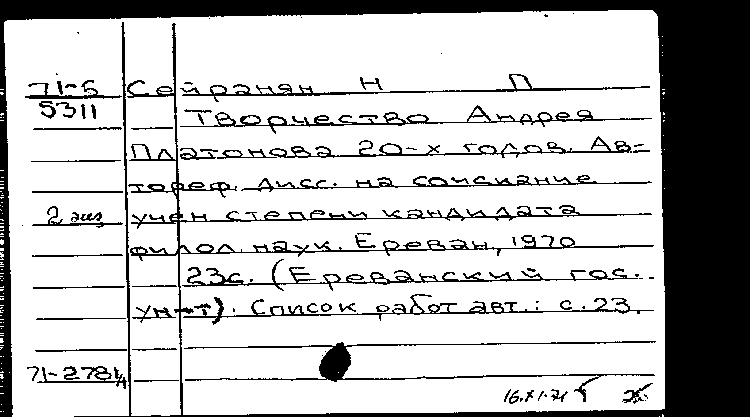 71-5 Сейранян Н П
5311 Творчество Андрея
Платонова 20-х годов. Ав-
тореф. дисс. на соискание
2 экз учен степени кандидата
филол. наук. Ереван, 1970
23с. (Ереванский гос.
ун-т). Список работ авт.: с.23.
71-2781
16.XI.71